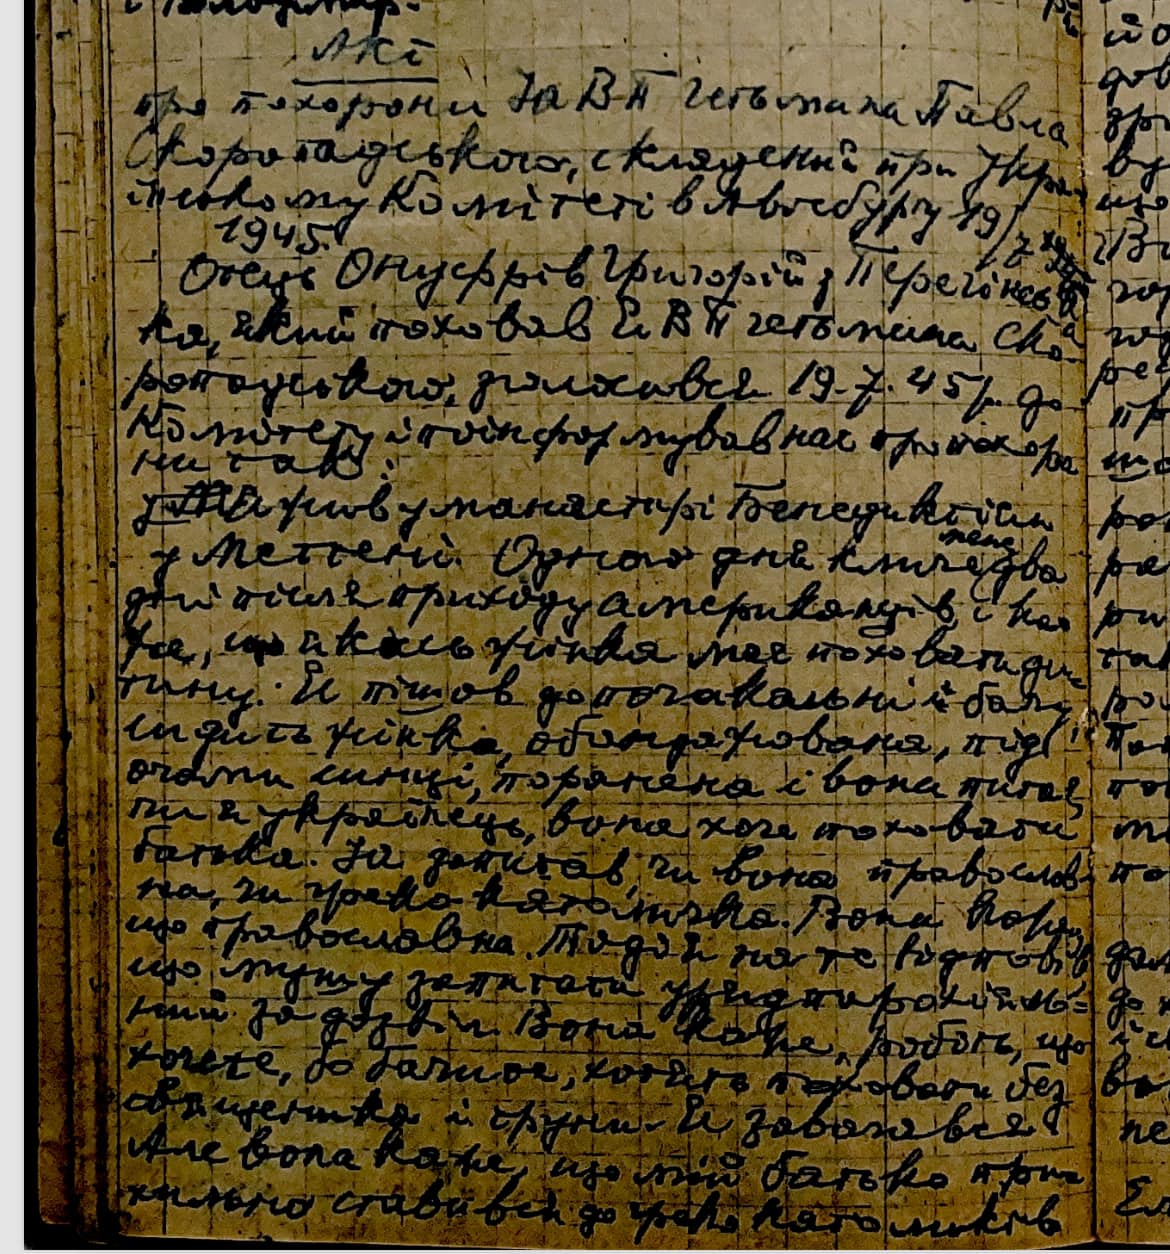 і Володимир.
Акт
про похорони Їа В П гетьмана Павла
Скоропадського, складений при Украї
їнському Комітеті в Авгсбургу 19/
1945.
Отець Онуфрів Григорій з Перегінсь
ка, який поховав Єй В П гетьмана Ско-
ропадського, зголосився 19.7.45 р. до
Комітету і поінформував нас про похоро
ни так:
Я жив у манастирі Бенедиктінів
у Меттені. Одного дня кличе мене два
дні після приходу американців і ка
же, що якась жінка має поховати ди-
тину. Я пішов до почекальні й бачу
сидить жінка, обандажована, під
очами синці, поранена і вона питає
чи я українець, вона хоче поховати
батька. Я запитав, чи вона православ
на, чи греко католичка. Вона каже,
що православна. Тоді я на те відповів,
що мушу запитати уряд парохіяль-
ний за дозвіл. Вона каже, робіть, що
хочете, бо бачите, хотять поховати без
священика і труни. Я завагався
Але вона каже, що мій батько при-
хильно ставився до греко католиків